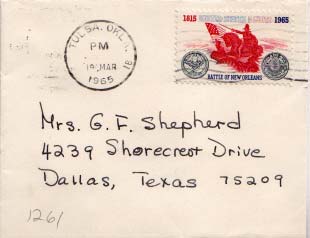 TULSA, OKLA.
PM
19 MAR
1965
1815 1965
BATTLE OF NEW ORLEANS
Mrs. G. F. Shepherd
4239 Shorecrest Drive
Dallas, Texas 75209
1261